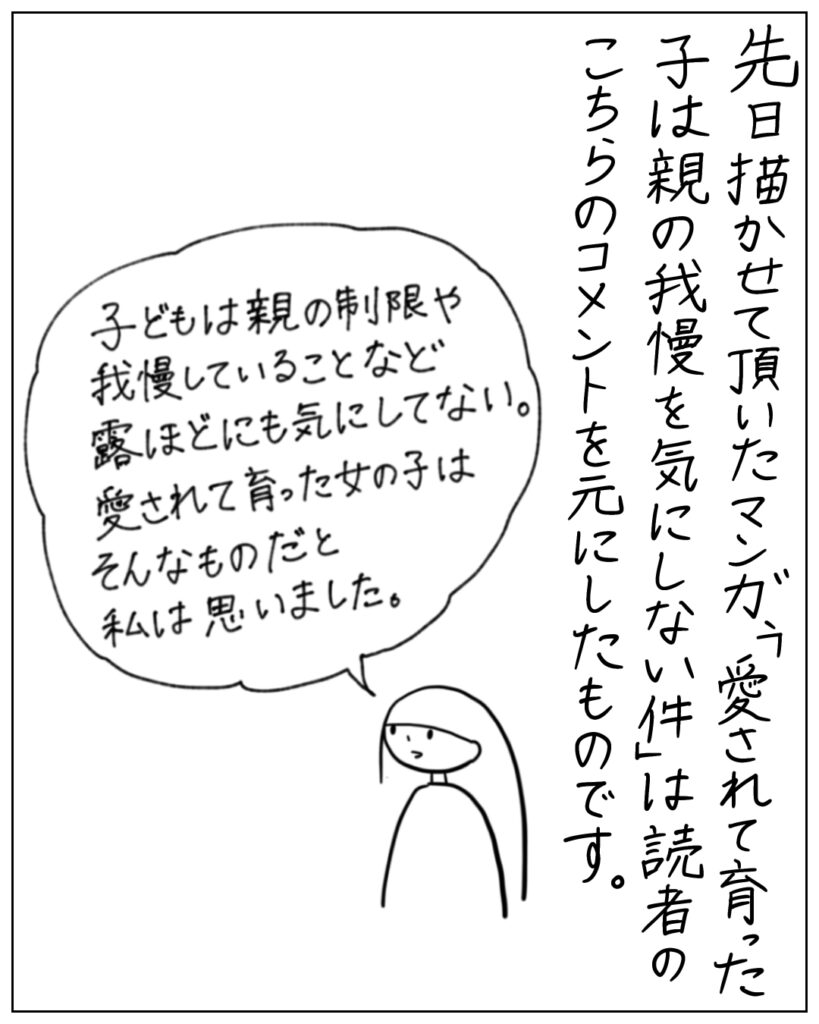 先日描かせて頂いたマンガ、「愛されて育った
子は親の我慢を気にしない件」は読者の
こちらのコメントを元にしたものです。
子どもは親の制限や
我慢していることなど
露ほどにも気にしてない。
愛されて育った女の子は
そんなものだと
私は思いました。